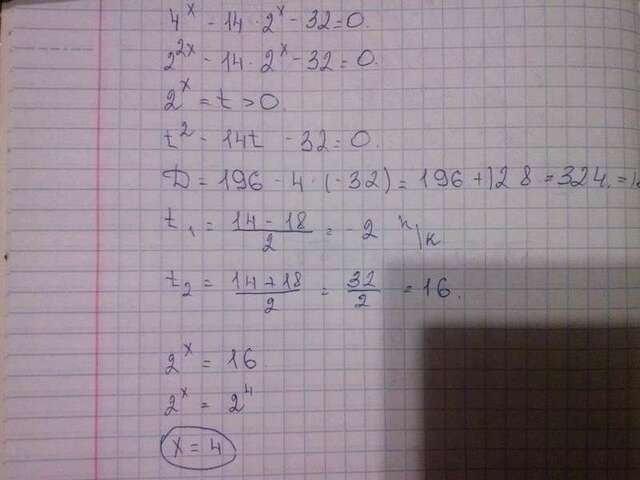 4ˣ - 14 · 2ˣ - 32 = 0.
2²ˣ - 14 · 2ˣ - 32 = 0.
2ˣ = t > 0
t² - 14t - 32 = 0.
D = 196 - 4 · (-32) = 196 + 128 = 324. =
t₁ = (14 - 18)/2 = -2 п/к
t₂ = (14 + 18)/2 = 32/2 = 16.
2ˣ = 16.
2ˣ = 2⁴
x = 4